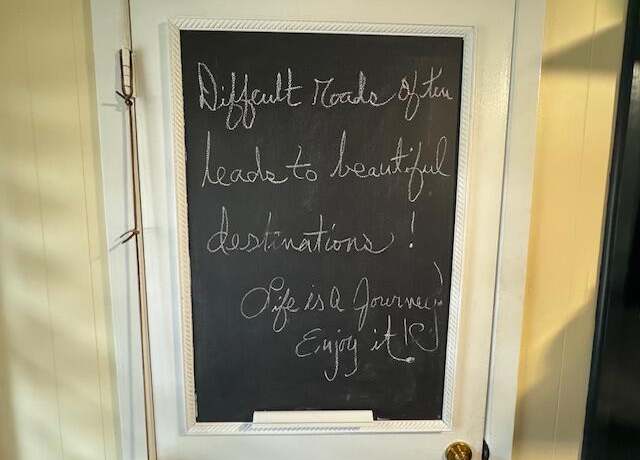 Difficult roads often
leads to beautiful
destinations!
Life is A Journey
Enjoy it!